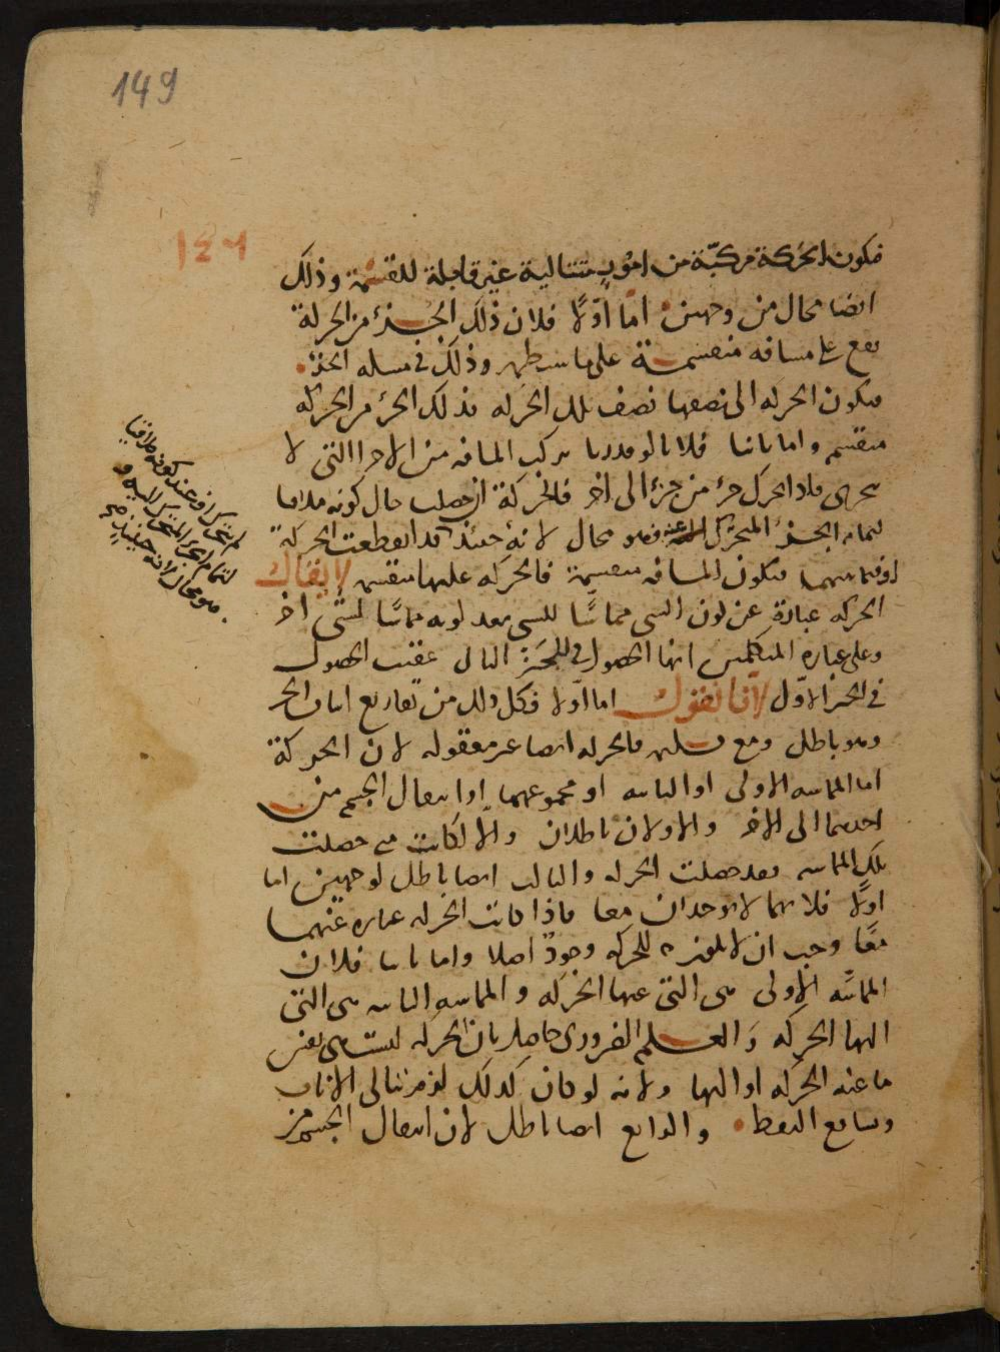 149
١٤٩
فيكون الحركة مركبّة من امورٍ متتالية غير قابلة للقسمة وذلك
ايضا محال من وجهين امّا اوّلًا فلان ذلك الجُزءَ من الحركة
يقع على مسافه منقسمة على ما سيظهر وذلك في مسله الجزء
فيكون الحركه الى نصفها نصف تلك الحركه فذلك الجزء من الحركه
منقسم واما ثانيا فلانا لو قدرنا تركب المسافه من الاجزا التى لا
يتجزى فاذا تحرك جزء من جزء الى اخر فالحركة ان حصلت حال كونه ملاقيا
لتمام الجزء المتحرك فهو محال لانه حينئذ قد انقطعت الحركة
او فيما بينهما فيكون المسافه منقسمة فالحركه عليها منقسمه لا يقال
الحركه عبارة عن كون الشى مماسًا للشى بعد كونه مماسًا لشى اخر
وعلى عبارة المتكلمين انها الحصول في الحيّز الثانى عقيب الحصول
فى الحيز الاوّل لانا نقول اما اوّلا فكل ذلك من تفاريع اثبات الجزء
وهو باطل ومع فالحركه ايضا غير معقوله لان الحركة
اما المماسه الاولى او الثانيه او مجموعهما او انتقال الجسم من
احديهما الى الاخر والاولان باطلان والا لكانت متى حصلت
تلك المماسه فقد حصلت الحركه والثالث ايضا باطل لوجهين اما
اوّلًا فلانهما لا توجدان معا فاذا كانت الحركه عباره عنهما
معًا وجب ان لا للحركه وجودٌ اصلا واما ثانيا فلان
المماسّه الاولى هى التى عنها الحركه والمماسه الثانيه هى التى
اليها الحركه وَالعلم الضرورى حاصل بان الحركه ليست هى نفس
ما عنه الحركه او اليها ولانه لو كان كذلك لزم تتالى الانات
وتتابع النقط والرابع ايضا باطل لان انتقال الجسم من
المتحرك او عند كونه ملاقيا
لتمام الجزء المتحرك اليه و
هو محال لانه حينئذ صح